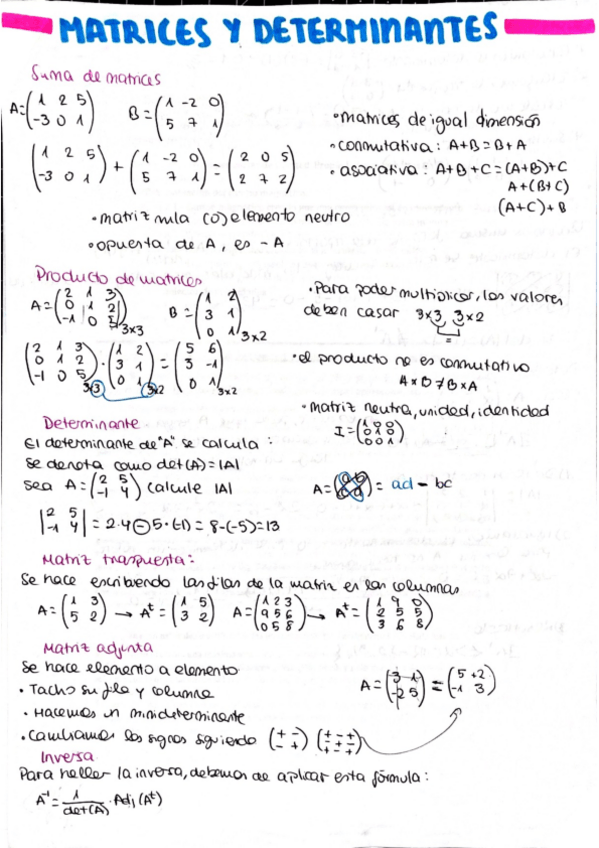 MATRICES Y DETERMINANTES
Suma de matrices
A=(1 2 5 / -3 0 1) B=(1 -2 0 / 5 7 1)
(1 2 5 / -3 0 1) + (1 -2 0 / 5 7 1) = (2 0 5 / 2 7 2)
• matrices de igual dimensión
• conmutativa: A+B=B+A
• asociativa: A+B+C=(A+B)+C
A+(B+C)
(A+C)+B
• matriz nula (0) elemento neutro
• opuesta de A, es -A
Producto de matrices
A=(2 1 3 / 0 1 2 / -1 0 5)3x3 B=(1 2 / 3 1 / 0 1)3x2
(2 1 3 / 0 1 2 / -1 0 5)3x3 · (1 2 / 3 1 / 0 1)3x2 = (5 6 / 3 -1 / 0 1)3x2
• Para poder multiplicar, los valores
deben casar 3x3, 3x2
=
• el producto no es conmutativo
A x B ≠ B x A
• matriz neutra, unidad, identidad
I=(1 0 0 / 0 1 0 / 0 0 1)
Determinante
El determinante de "A" se calcula:
Se denota como det(A)=|A|
sea A=(2 5 / -1 4) calcule |A|
A=(a b / c d) = ad - bc
|2 5 / -1 4| = 2·4 - 5·(-1) = 8-(-5)=13
Matriz traspuesta:
Se hace escribiendo las filas de la matriz en las columnas
A=(1 3 / 5 2) → Aᵗ=(1 5 / 3 2) A=(1 2 3 / 9 5 6 / 0 5 8) → Aᵗ=(1 9 0 / 2 5 5 / 3 6 8)
Matriz adjunta
Se hace elemento a elemento
• Tacho su fila y columna
• Hacemos un minideterminante
• Cambiamos los signos siguiendo (+ - / - +) (+ - + / - + - / + - +)
A=(3 1 / -2 5) = (5 +2 / -1 3)
Inversa
Para haller la inversa, debemos de aplicar esta fórmula:
A⁻¹= 1/det(A) · Adj(Aᵗ)